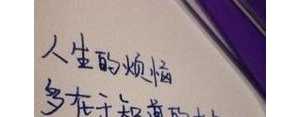 人生的烦恼
多在于知道的太